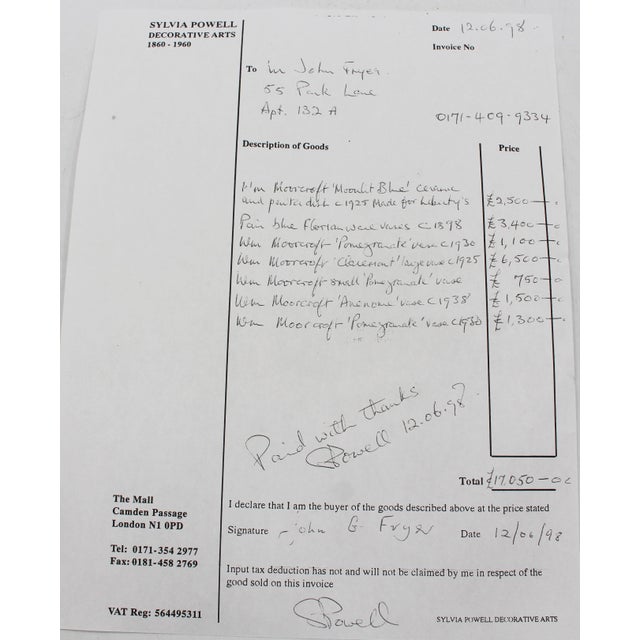 SYLVIA POWELL
DECORATIVE ARTS
1860 - 1960
Date 12.06.98.
Invoice No
To Mr John Fryer.
55 Park Lane
Apt. 132 A
0171-409-9334
Description of Goods
Price
Wm Moorcroft 'Moonlit Blue' ceramic
and pewter dish c1925 Made for Liberty's £2,500-0
Pair blue Florian ware vases c.1898 £3,400-0
Wm Moorcroft 'Pomegranate' vase c1930 £1,100-0
Wm Moorcroft 'Claremont' large vase c1925 £6,500-0
Wm Moorcroft small 'Pomegranate' vase £750-0
Wm Moorcroft 'Anenome' vase c1938 £1,500-0
Wm Moorcroft 'Pomegranate' vase c1930 £1,300-0
Paid with thanks
SPowell 12.06.98
Total £17,050-00
The Mall
Camden Passage
London N1 0PD
Tel: 0171-354 2977
Fax: 0181-458 2769
VAT Reg: 564495311
I declare that I am the buyer of the goods described above at the price stated
Signature John G Fryer Date 12/06/98
Input tax deduction has not and will not be claimed by me in respect of the
good sold on this invoice
SPowell
SYLVIA POWELL DECORATIVE ARTS